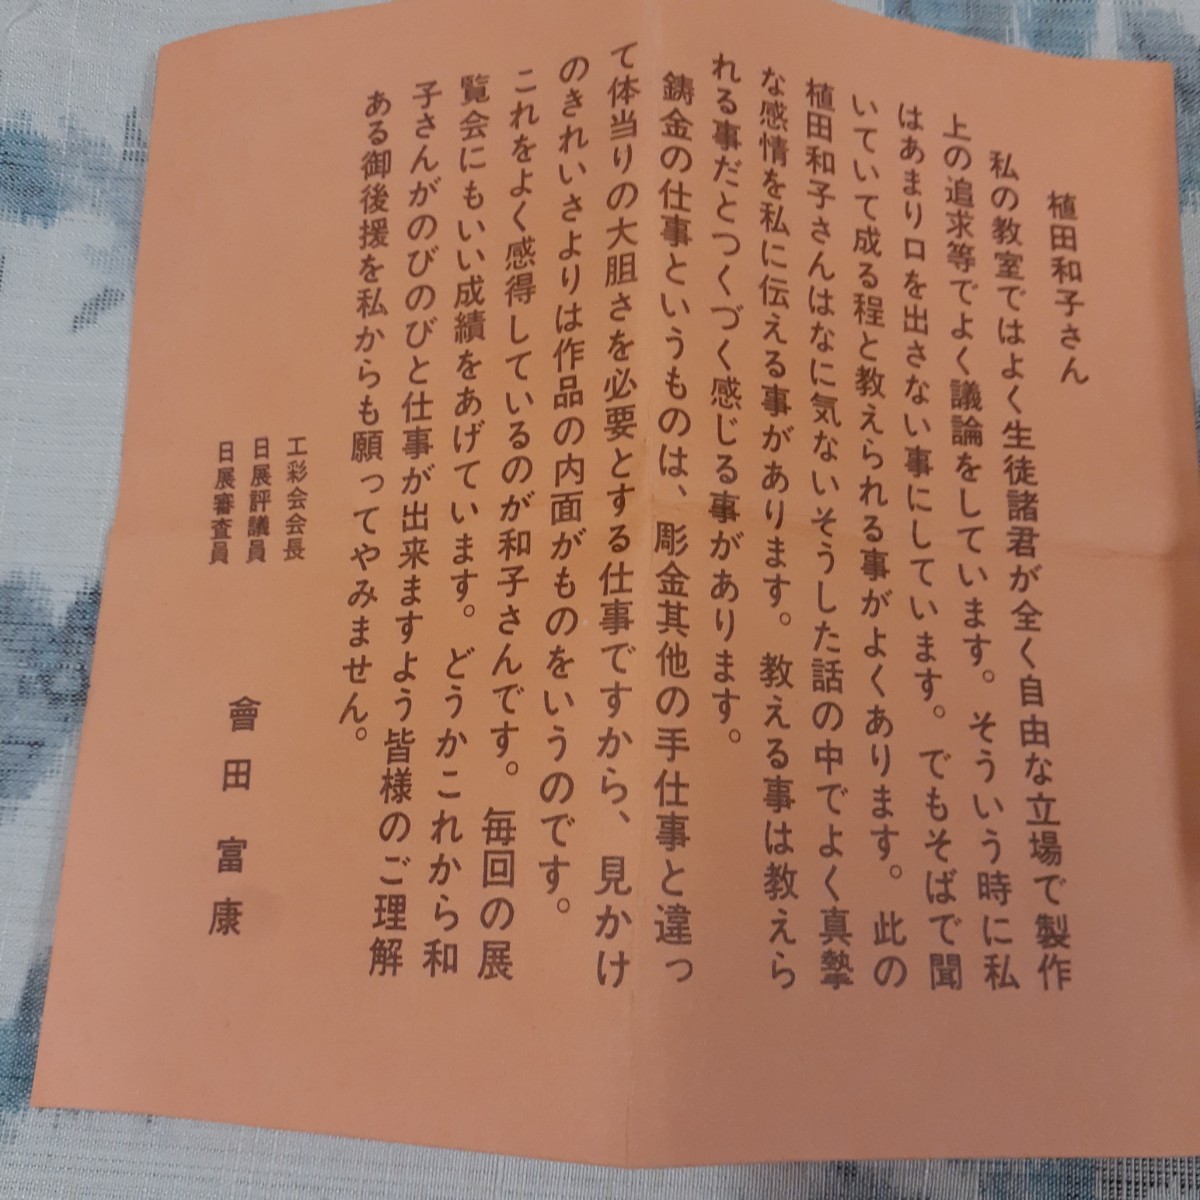 植田和子さん
私の教室ではよく生徒諸君が全く自由な立場で製作
上の追求等でよく議論をしています。そういう時に私
はあまり口を出さない事にしています。でもそばで聞
いていて成る程と教えられる事がよくあります。此の
植田和子さんはなに気ないそうした話の中でよく真摯
な感情を私に伝える事があります。教える事は教えら
れる事だとつくづく感じる事があります。
鋳金の仕事というものは、彫金其他の手仕事と違っ
て体当りの大胆さを必要とする仕事ですから、見かけ
のきれいさよりは作品の内面がものをいうのです。
これをよく感得しているのが和子さんです。毎回の展
覧会にもいい成績をあげています。どうかこれから和
子さんがのびのびと仕事が出来ますよう皆様のご理解
ある御後援を私からも願ってやみません。
工彩会会長
日展評議員
日展審査員
會田富康